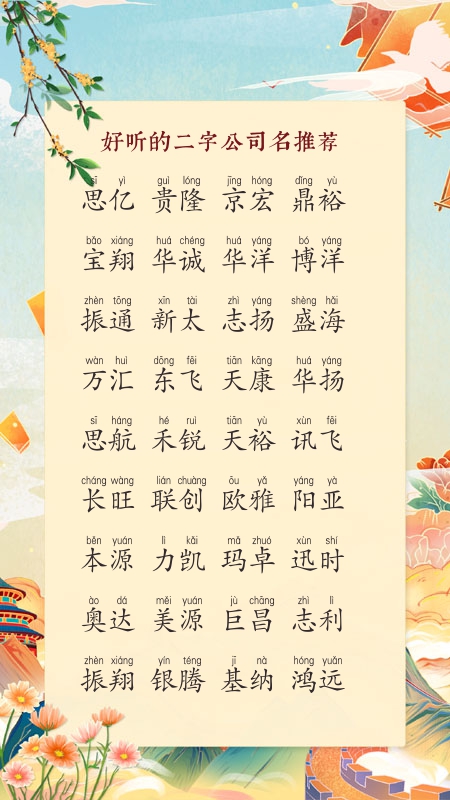 好听的二字公司名推荐
sī yì guì lóng jīng hóng dǐng yù
思亿 贵隆 京宏 鼎裕
bǎo xiáng huá chéng huá yáng bó yáng
宝翔 华诚 华洋 博洋
zhèn tōng xīn tài zhì yáng shèng hǎi
振通 新太 志扬 盛海
wàn huì dōng fēi tiān kāng huá yáng
万汇 东飞 天康 华扬
sī háng hé ruì tiān yù xùn fēi
思航 禾锐 天裕 讯飞
cháng wàng lián chuàng ōu yǎ yáng yà
长旺 联创 欧雅 阳亚
běn yuán lì kǎi mǎ zhuó xùn shí
本源 力凯 玛卓 迅时
ào dá měi yuán jù chāng zhì lì
奥达 美源 巨昌 志利
zhèn xiáng yín téng jī nà hóng yuǎn
振翔 银腾 基纳 鸿远